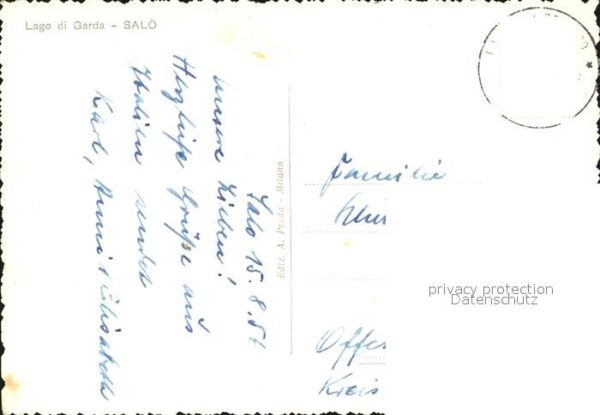 Lago di Garda - SALÒ
Salo 15.8.56
Unsere Lieben!
Herzliche Grüße aus
Italien sendet
Karl, Anni + Elisabeth
Ediz. A. Preda - Milano
Familie
Offe
Kreis
privacy protection
Datenschutz